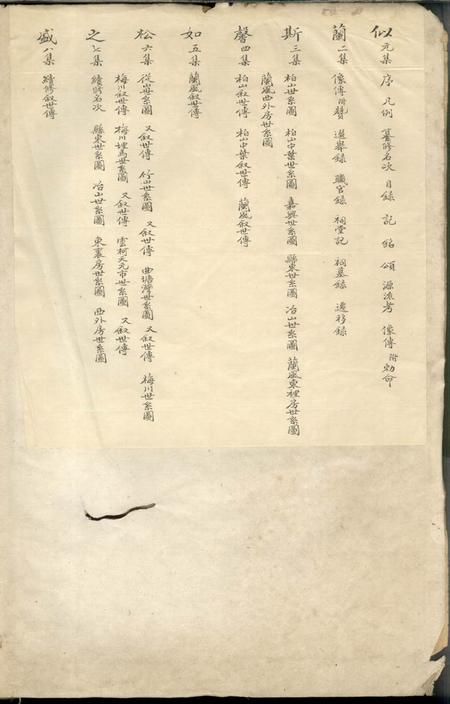 似 元集 序 凡例 纂修名次 目錄 記 銘 頌 源流考 像傳 附勅命
蘭 二集 像傳附贊 選舉錄 職官錄 祠堂記 祠墓錄 遷移錄
斯 三集 柏山世系圖 柏山中葉世系圖 嘉興世系圖 縣東世系圖 冶山世系圖 蘭風東裡房世系圖
蘭風西外房世系圖
馨 四集 柏山叙世傳 柏山中葉叙世傳 蘭風叙世傳
如 五集 蘭風叙世傳
松 六集 從山世系圖 又叙世傳 竹山世系圖 又叙世傳 曲塘灣世系圖 又叙世傳 梅川世系圖
梅川叙世傳 梅川埋馬世系圖 又叙世傳 雲柯天元市世系圖 又叙世傳
之 七集 續修名次 縣東世系圖 冶山世系圖 東裏房世系圖 西外房世系圖
盛 八集 續修叙世傳